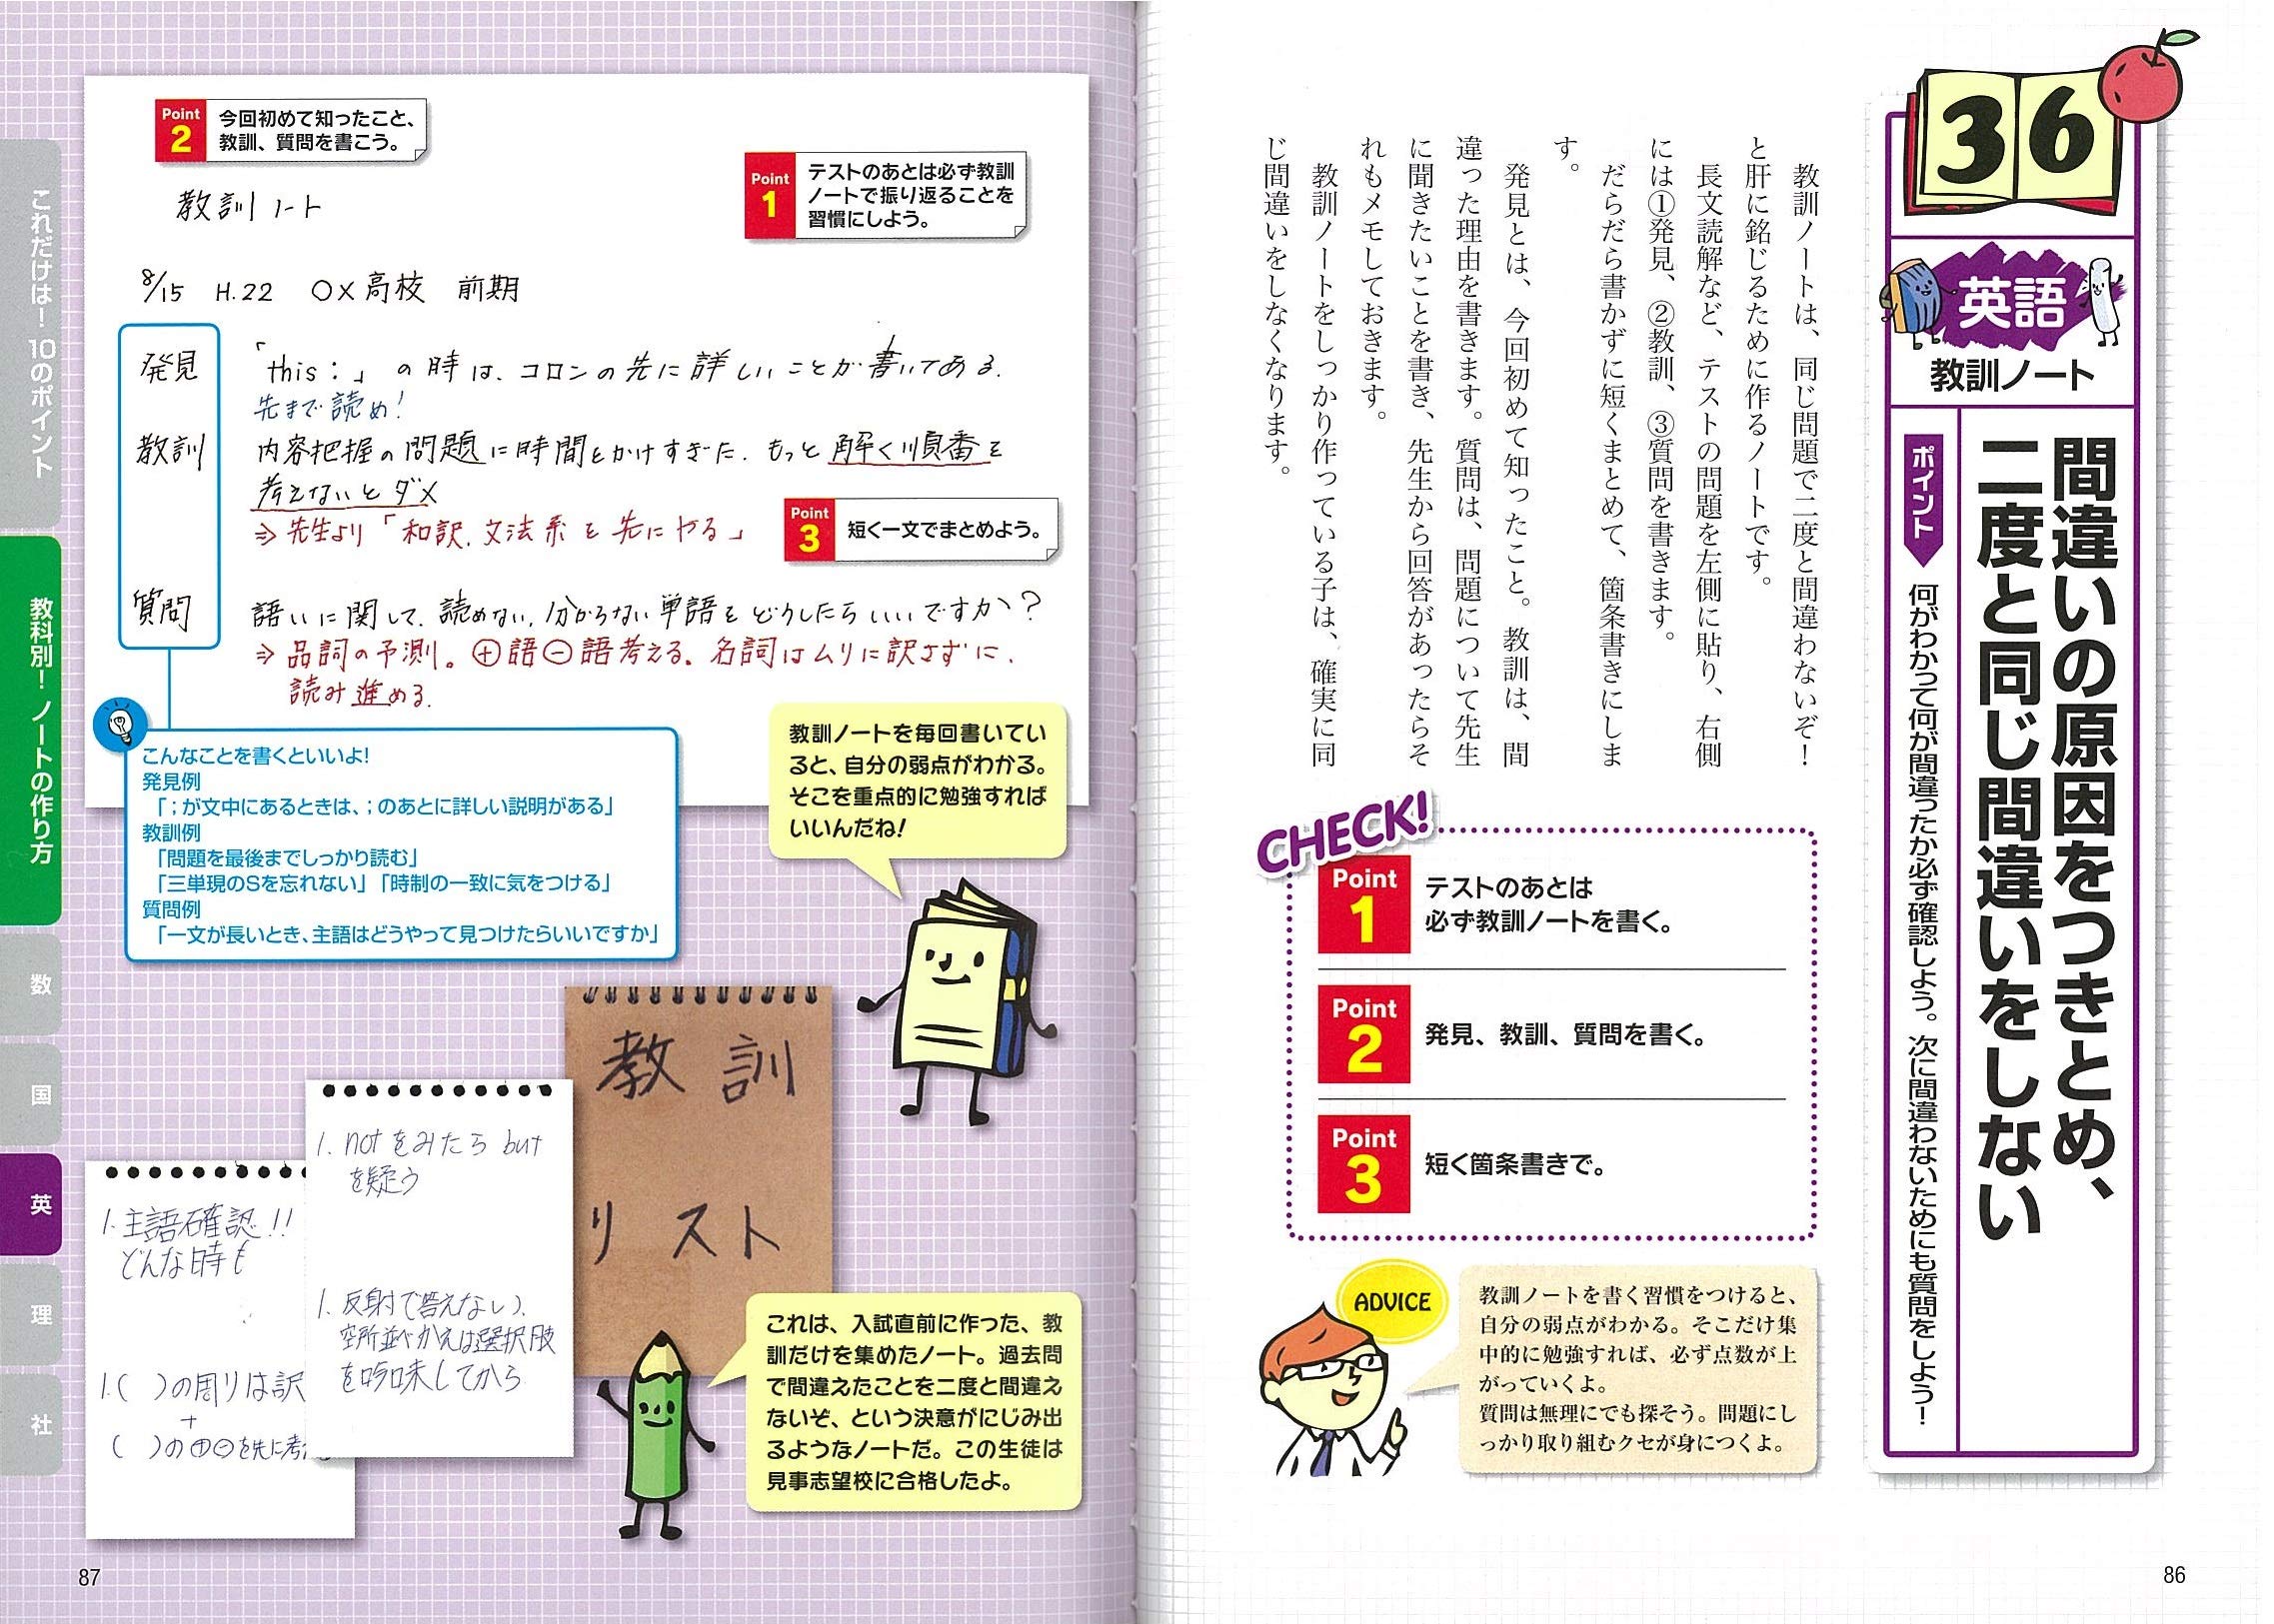 36
英語
教訓ノート
間違いの原因をつきとめ、
二度と同じ間違いをしない
ポイント
何がわかって何が間違ったか必ず確認しよう。次に間違わないためにも質問をしよう!
教訓ノートは、同じ問題で二度と間違わないぞ!
と肝に銘じるために作るノートです。
長文読解など、テストの問題を左側に貼り、右側
には①発見、②教訓、③質問を書きます。
だらだら書かずに短くまとめて、箇条書きにしま
す。
発見とは、今回初めて知ったこと。教訓は、間
違った理由を書きます。質問は、問題について先生
に聞きたいことを書き、先生から回答があったらそ
れもメモしておきます。
教訓ノートをしっかり作っている子は、確実に同
じ間違いをしなくなります。
CHECK!
Point 1
テストのあとは
必ず教訓ノートを書く。
Point 2
発見、教訓、質問を書く。
Point 3
短く箇条書きで。
ADVICE
教訓ノートを書く習慣をつけると、
自分の弱点がわかる。そこだけ集
中的に勉強すれば、必ず点数が上
がっていくよ。
質問は無理にでも探そう。問題にし
っかり取り組むクセが身につくよ。
86
Point 2
今回初めて知ったこと、
教訓、質問を書こう。
Point 1
テストのあとは必ず教訓
ノートで振り返ることを
習慣にしよう。
教訓ノート
8/15 H.22 ○×高校 前期
発見
「this:」の時は、コロンの先に詳しいことが書いてある.
先まで読め!
教訓
内容把握の問題に時間をかけすぎた. もっと解く順番を
考えないとダメ
⇒先生より「和訳、文法系を先にやる」
Point 3
短く一文でまとめよう。
質問
語いに関して、読めない,分からない単語をどうしたらいいですか?
⇒品詞の予測。⊕語⊖語考える。名詞はムリに訳さずに、
読み進める.
こんなことを書くといいよ!
発見例
「;が文中にあるときは、;のあとに詳しい説明がある」
教訓例
「問題を最後までしっかり読む」
「三単現のSを忘れない」「時制の一致に気をつける」
質問例
「一文が長いとき、主語はどうやって見つけたらいいですか」
教訓ノートを毎回書いてい
ると、自分の弱点がわかる。
そこを重点的に勉強すれば
いいんだね!
教訓
リスト
1. notをみたら but
を疑う
1. 反射で答えない).
空所並べかえは選択肢
を吟味してから
1. 主語確認!!
どんな時も
1.( )の周りは訳
+
( )の⊕⊖を先に考
これは、入試直前に作った、教
訓だけを集めたノート。過去問
で間違えたことを二度と間違え
ないぞ、という決意がにじみ出
るようなノートだ。この生徒は
見事志望校に合格したよ。
87
これだけは!10のポイント
教科別!ノートの作り方
数
国
英
理
社